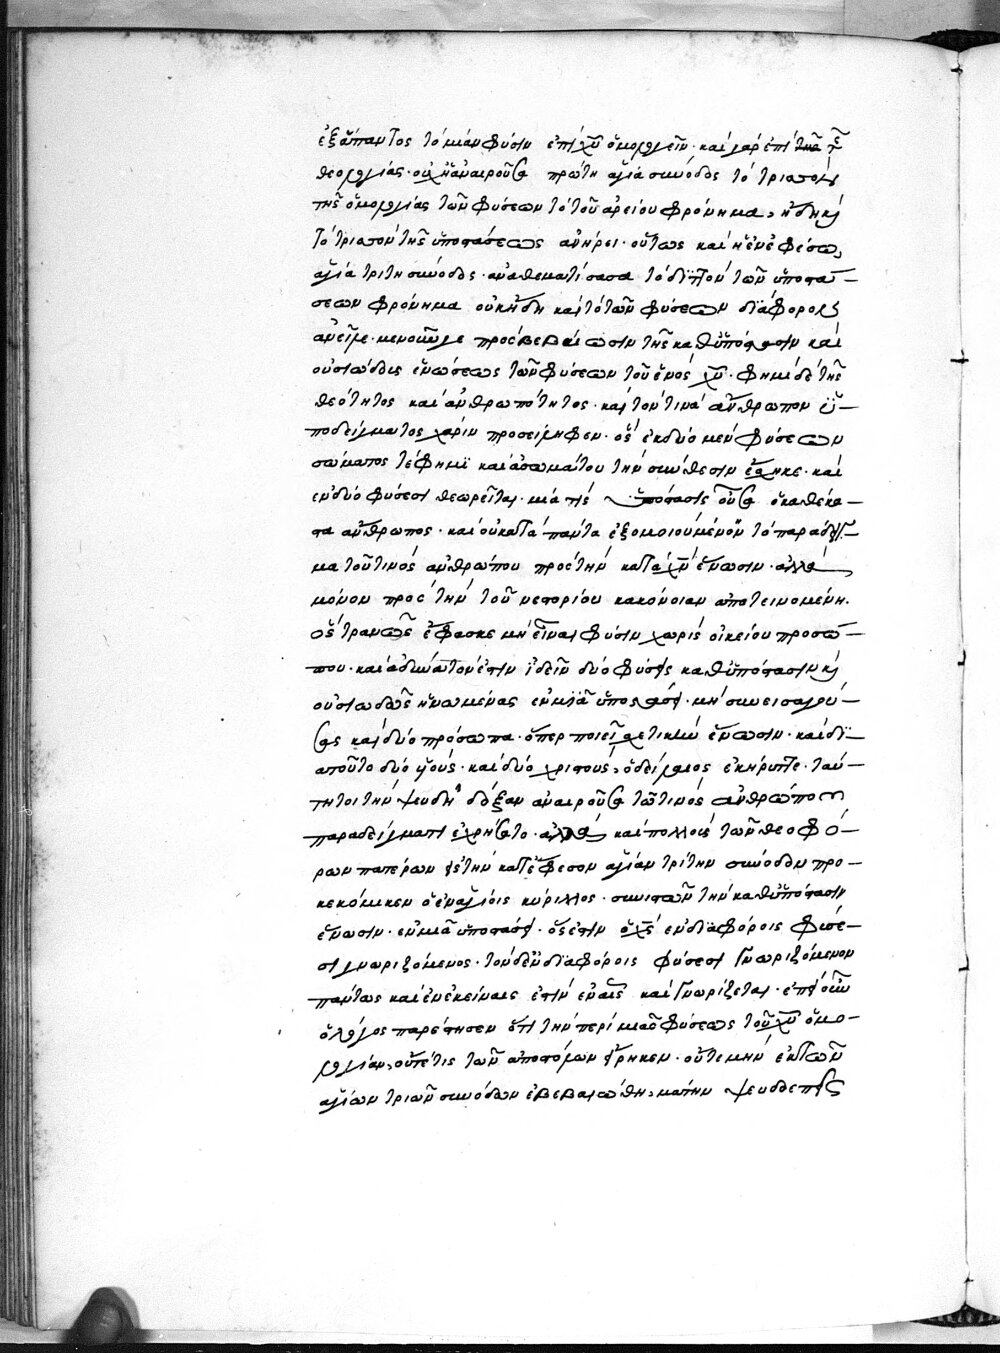 ἐξάπαντος τὸ μίαν φύσιν ἐπὶ χῦ ὁμολογεῖν· καὶ γὰρ ἐπὶ τῆς
θεολογίας· οὐχ ἡ ἀναιροῦσα πρώτη ἁγία σύνοδος τὸ τρισσὸν
τῆς ὁμολογίας τῶν φύσεων τὸ τοῦ ἀρείου φρόνημα, ἤδη κὶ
τὸ τρισσὸν τῆς ὑποστάσεως ἀνήρει· οὕτως καὶ ἡ ἐν ἐφέσω,
ἁγία τρίτη σύνοδος· ἀναθεματίσασα τὸ διττὸν τῶν ὑποστά–
σεων φρόνημα οὐκ ἤδη καὶ τὸ τῶν φύσεων διάφορον
ἀνεῖλε· μενοῦνγε πρὸς βεβαίωσιν τῆς καθ' ὑπόστασιν καὶ
οὐσιώδους ἑνώσεως τῶν φύσεων τοῦ ἑνὸς χῦ· φημὶ δὲ τῆς
θεότητος καὶ ἀνθρωπότητος· καὶ τὸν τινὰ ἄνθρωπον ὑ–
ποδείγματος χάριν προσείληφεν· ὃς ἐκ δύο μὲν φύσεων
σώματος τέ φημι καὶ ἀσωμάτου τὴν σύνθεσιν ἔσχηκε· καὶ
ἐν δύο φύσεσι θεωρεῖται· μία τίς ὑπόστασις οὖσα ὁ καθέκα–
στα ἄνθρωπος· καὶ οὐ κατὰ πάντα ἐξομοιούμενον τὸ παράδειγ–
μα τοῦ τινὸς ἀνθρώπου πρὸς τὴν κατὰ χν ἕνωσιν· ἀλλὰ
μόνον πρὸς τὴν τοῦ νεστορίου κακόνοιαν ἀποτεινομένη.
ὃς τρανῶς ἔφασκε μὴ εἶναι φύσιν χωρὶς οἰκείου προσώ–
που· καὶ ἀδύνατον ἐστὶν ἰδεῖν δύο φύσεις καθ' ὑπόστασιν κὶ
οὐσιωδῶς ἡνωμένας ἐν μιᾶ ὑποστάσει· μὴ συνεισαγού–
σας καὶ δύο πρόσωπα· ὅπερ ποιεῖ σχετικὴν ἕνωσιν· καὶ δι–
απτοῦτο δύο υἱοὺς· καὶ δύο χριστοὺς, ὁ δείλαιος ἐκήρυττε· ταύ–
τη τοι τὴν ψευδῆ δόξαν ἀναιροῦσα τῶ τινὸς ἀνθρώπου
παραδείγματι ἐχρήσατο· ἀλλὰ καὶ πολλοῖς τῶν θεοφό–
ρων πατέρων εἰς τὴν κατ' ἔφεσον ἁγίαν τρίτην σύνοδον προ–
κεκόμικεν ὁ ἐν ἁγίοις κύριλλος· συνιστῶν τὴν καθ' ὑπόστασιν
ἕνωσιν· ἐν μιᾶ ὑποστάσει· ὅς ἐστιν ὁ χς ἐν διαφόροις φύσε–
σι γνωριζόμενος· τὸν δ' ἐν διαφόροις φύσεσι γνωριζόμενον
πάντως καὶ ἐν ἐκείναις ἐστὶν ἐν αἷς καὶ γνωρίζεται· ἐπεὶ οὖν
ὁ λόγος παρέστησεν ὅτι τὴν περὶ μιᾶς φύσεως τοῦ χῦ ὁμο–
λογίαν, οὔτέ τις τῶν ἀποστόλων εἴρηκεν· οὔτε μὴν ἐκ τῶν
ἁγίων τριῶν συνόδων ἐβεβαιώθη, μάτην ψευδοεπεῖς